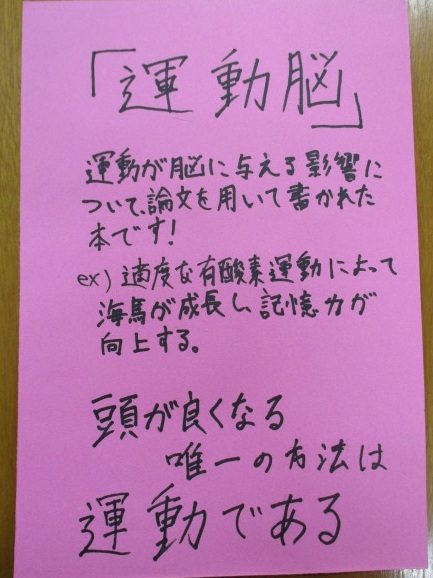 「運動脳」
運動が脳に与える影響に
ついて、論文を用いて書かれた
本です!
ex) 適度な有酸素運動によって
海馬が成長し、記憶力が
向上する。
頭が良くなる
唯一の方法は
運動である